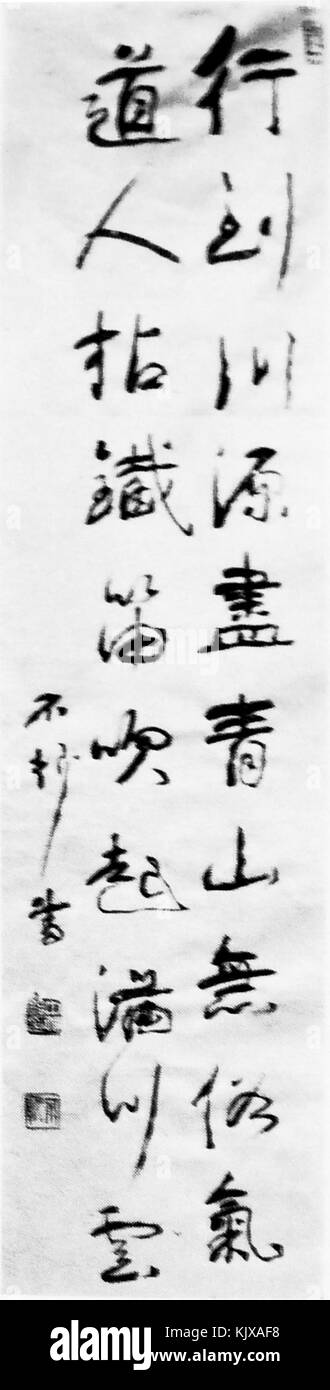 行到川源盡青山無俗氣
道人拈鐵笛吹起滿川雲
不折書
alamy
Image ID: KJXAF8
www.alamy.com